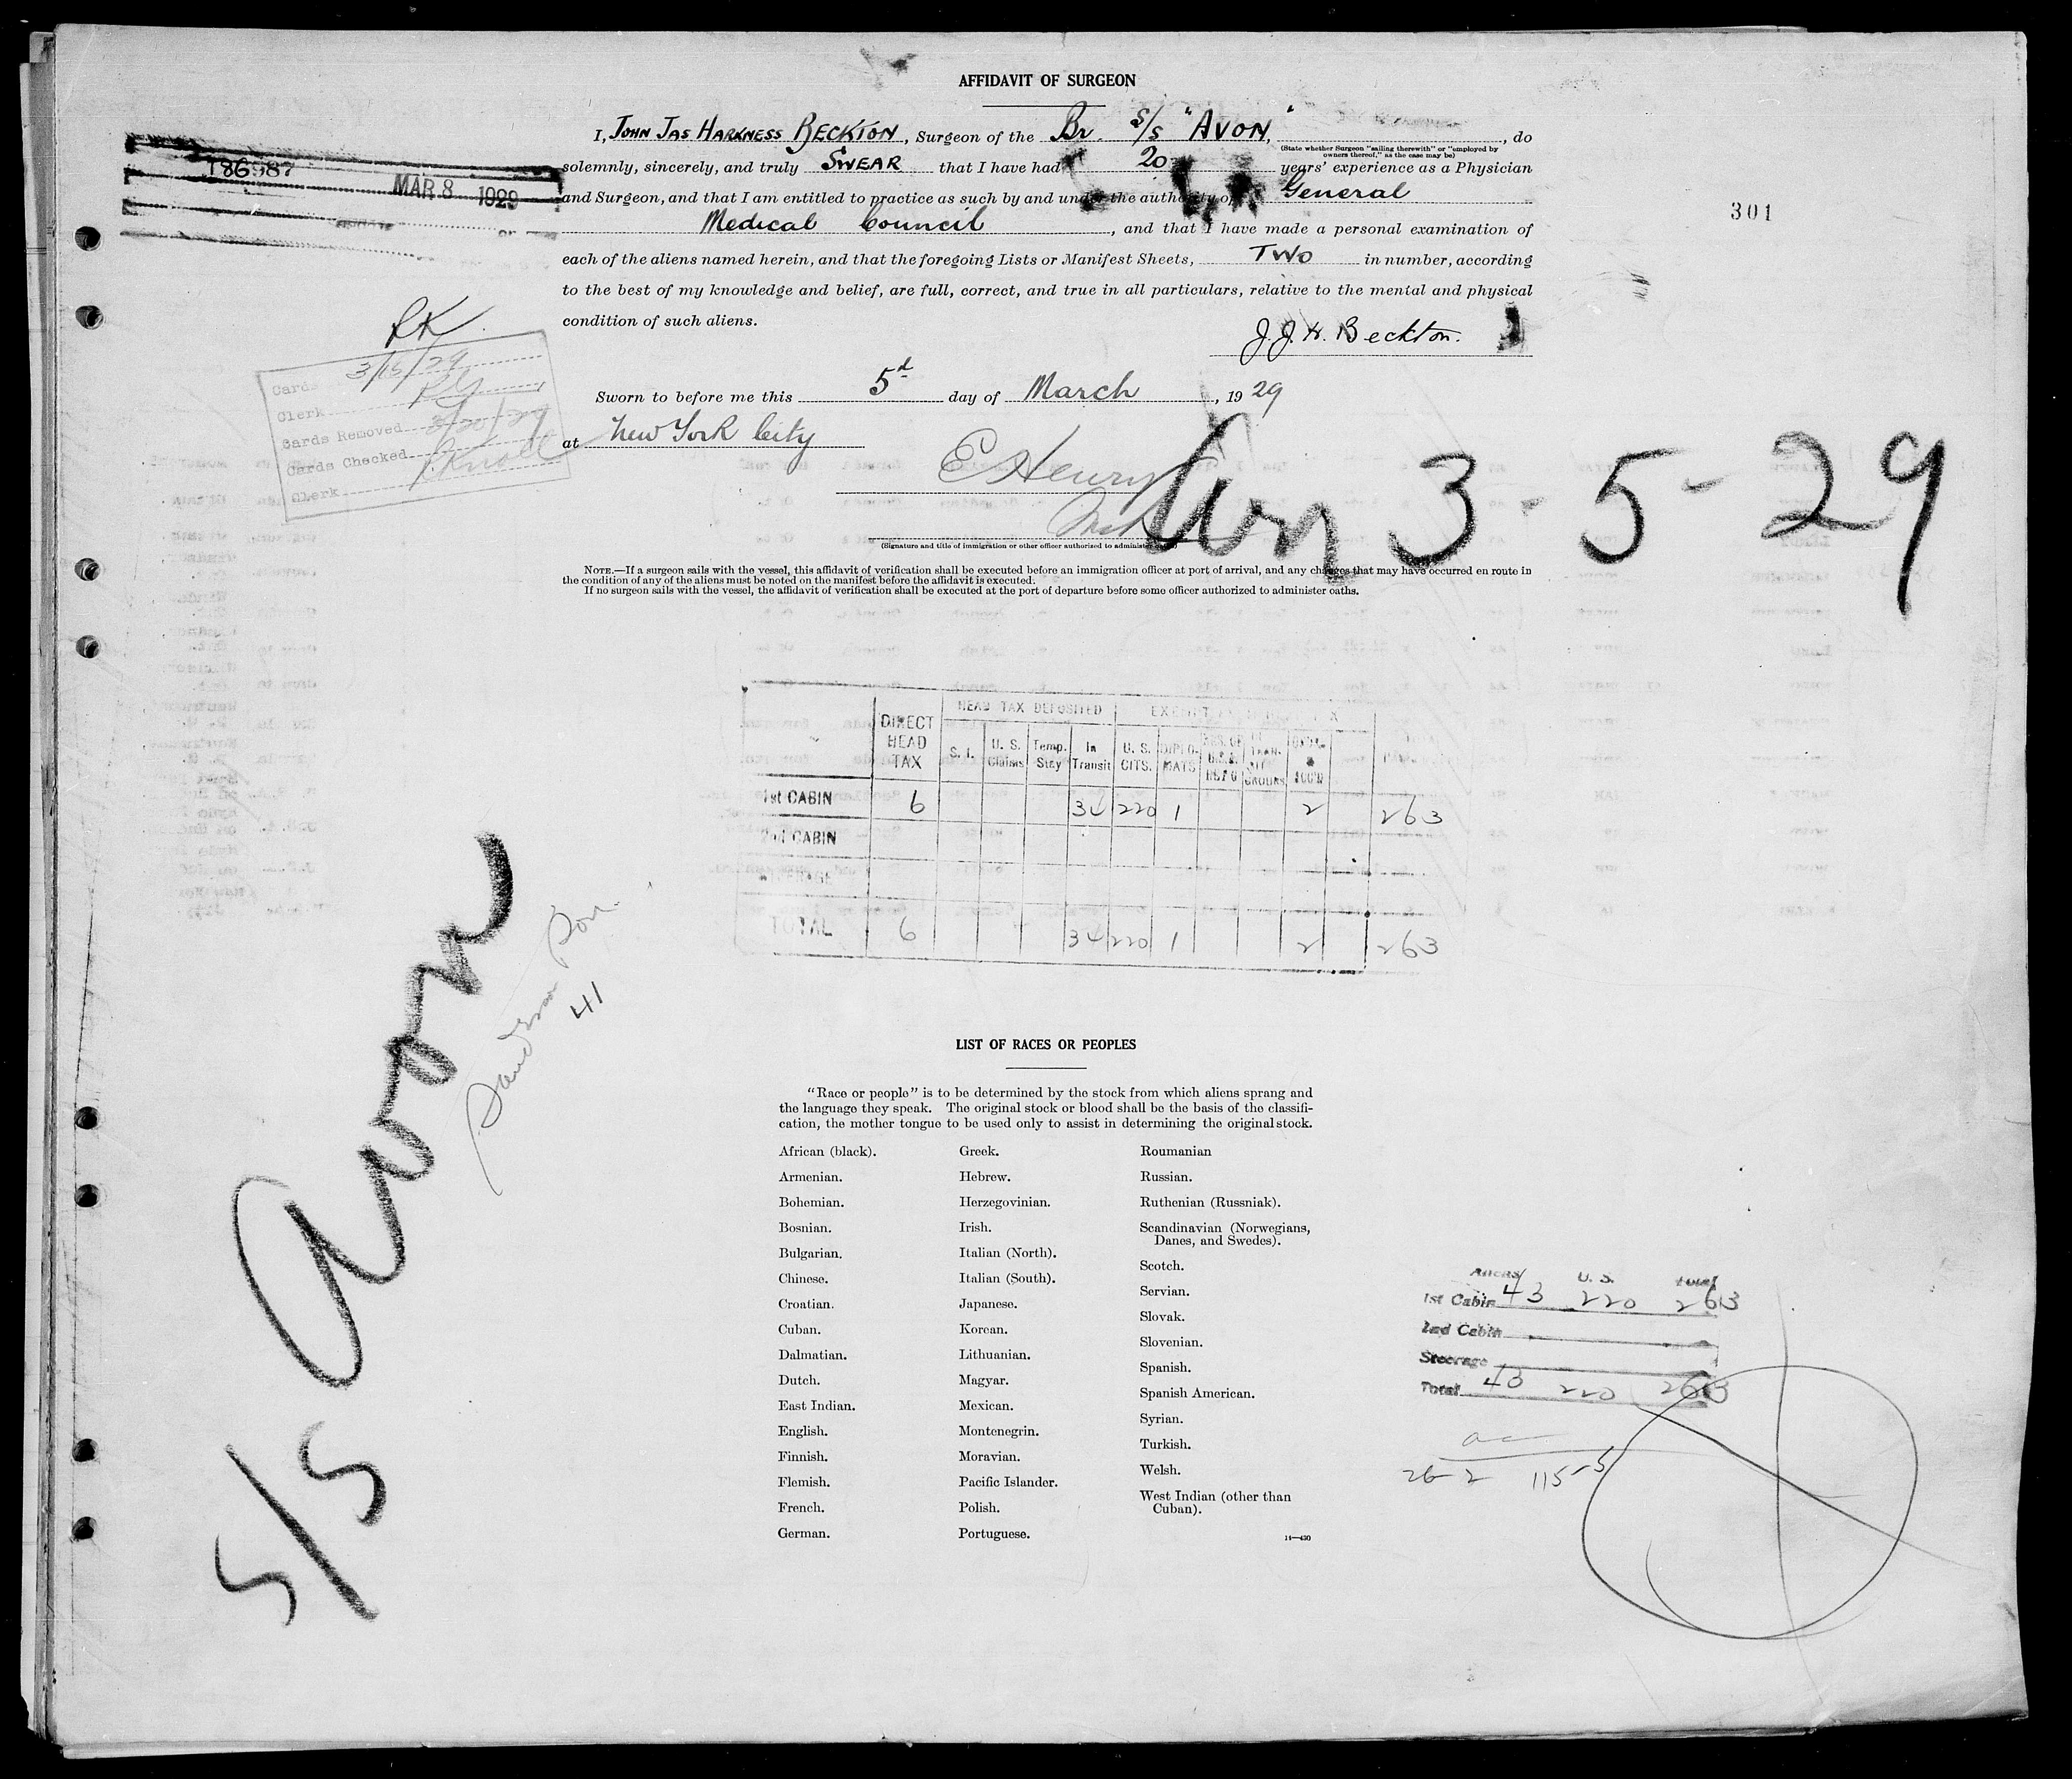 AFFIDAVIT OF SURGEON
I, JOHN JAS HARKNESS BECKTON, Surgeon of the Br. S/S "AVON," , do
(State whether Surgeon "sailing therewith" or "employed by
owners thereof," as the case may be)
solemnly, sincerely, and truly SWEAR that I have had 20 years' experience as a Physician
and Surgeon, and that I am entitled to practice as such by and under the authority of General
Medical Council, and that I have made a personal examination of
each of the aliens named herein, and that the foregoing Lists or Manifest Sheets, TWO in number, according
to the best of my knowledge and belief, are full, correct, and true in all particulars, relative to the mental and physical
condition of such aliens.
J. J. H. Beckton.
Sworn to before me this 5d day of March, 1929
at New York City
E Henry
(Signature and title of immigration or other officer authorized to administer
NOTE.—If a surgeon sails with the vessel, this affidavit of verification shall be executed before an immigration officer at port of arrival, and any changes that may have occurred en route in
the condition of any of the aliens must be noted on the manifest before the affidavit is executed.
If no surgeon sails with the vessel, the affidavit of verification shall be executed at the port of departure before some officer authorized to administer oaths.
186987
MAR 8 1929
301
RK
Cards 3/15/29
Clerk
Cards Removed 3/20/29
Cards Checked RKnoll
Clerk
Avon 3-5-29
HEAD TAX DEPOSITED
DIRECT HEAD TAX S. I. U. S. Claims Temp. Stay In Transit U. S. CITS. DIPLO-MATS
1st CABIN 6 34 220 1 2 263
2nd CABIN
STEERAGE
TOTAL 6 34 220 1 2 263
S/S Avon
41
LIST OF RACES OR PEOPLES
"Race or people" is to be determined by the stock from which aliens sprang and
the language they speak. The original stock or blood shall be the basis of the classifi-
cation, the mother tongue to be used only to assist in determining the original stock.
African (black).
Armenian.
Bohemian.
Bosnian.
Bulgarian.
Chinese.
Croatian.
Cuban.
Dalmatian.
Dutch.
East Indian.
English.
Finnish.
Flemish.
French.
German.
Greek.
Hebrew.
Herzegovinian.
Irish.
Italian (North).
Italian (South).
Japanese.
Korean.
Lithuanian.
Magyar.
Mexican.
Montenegrin.
Moravian.
Pacific Islander.
Polish.
Portuguese.
Roumanian
Russian.
Ruthenian (Russniak).
Scandinavian (Norwegians,
Danes, and Swedes).
Scotch.
Servian.
Slovak.
Slovenian.
Spanish.
Spanish American.
Syrian.
Turkish.
Welsh.
West Indian (other than
Cuban).
14—430
Aliens U. S. Total
1st Cabin 43 220 263
2nd Cabin
Steerage
Total 43 220 263
26-2 115-5